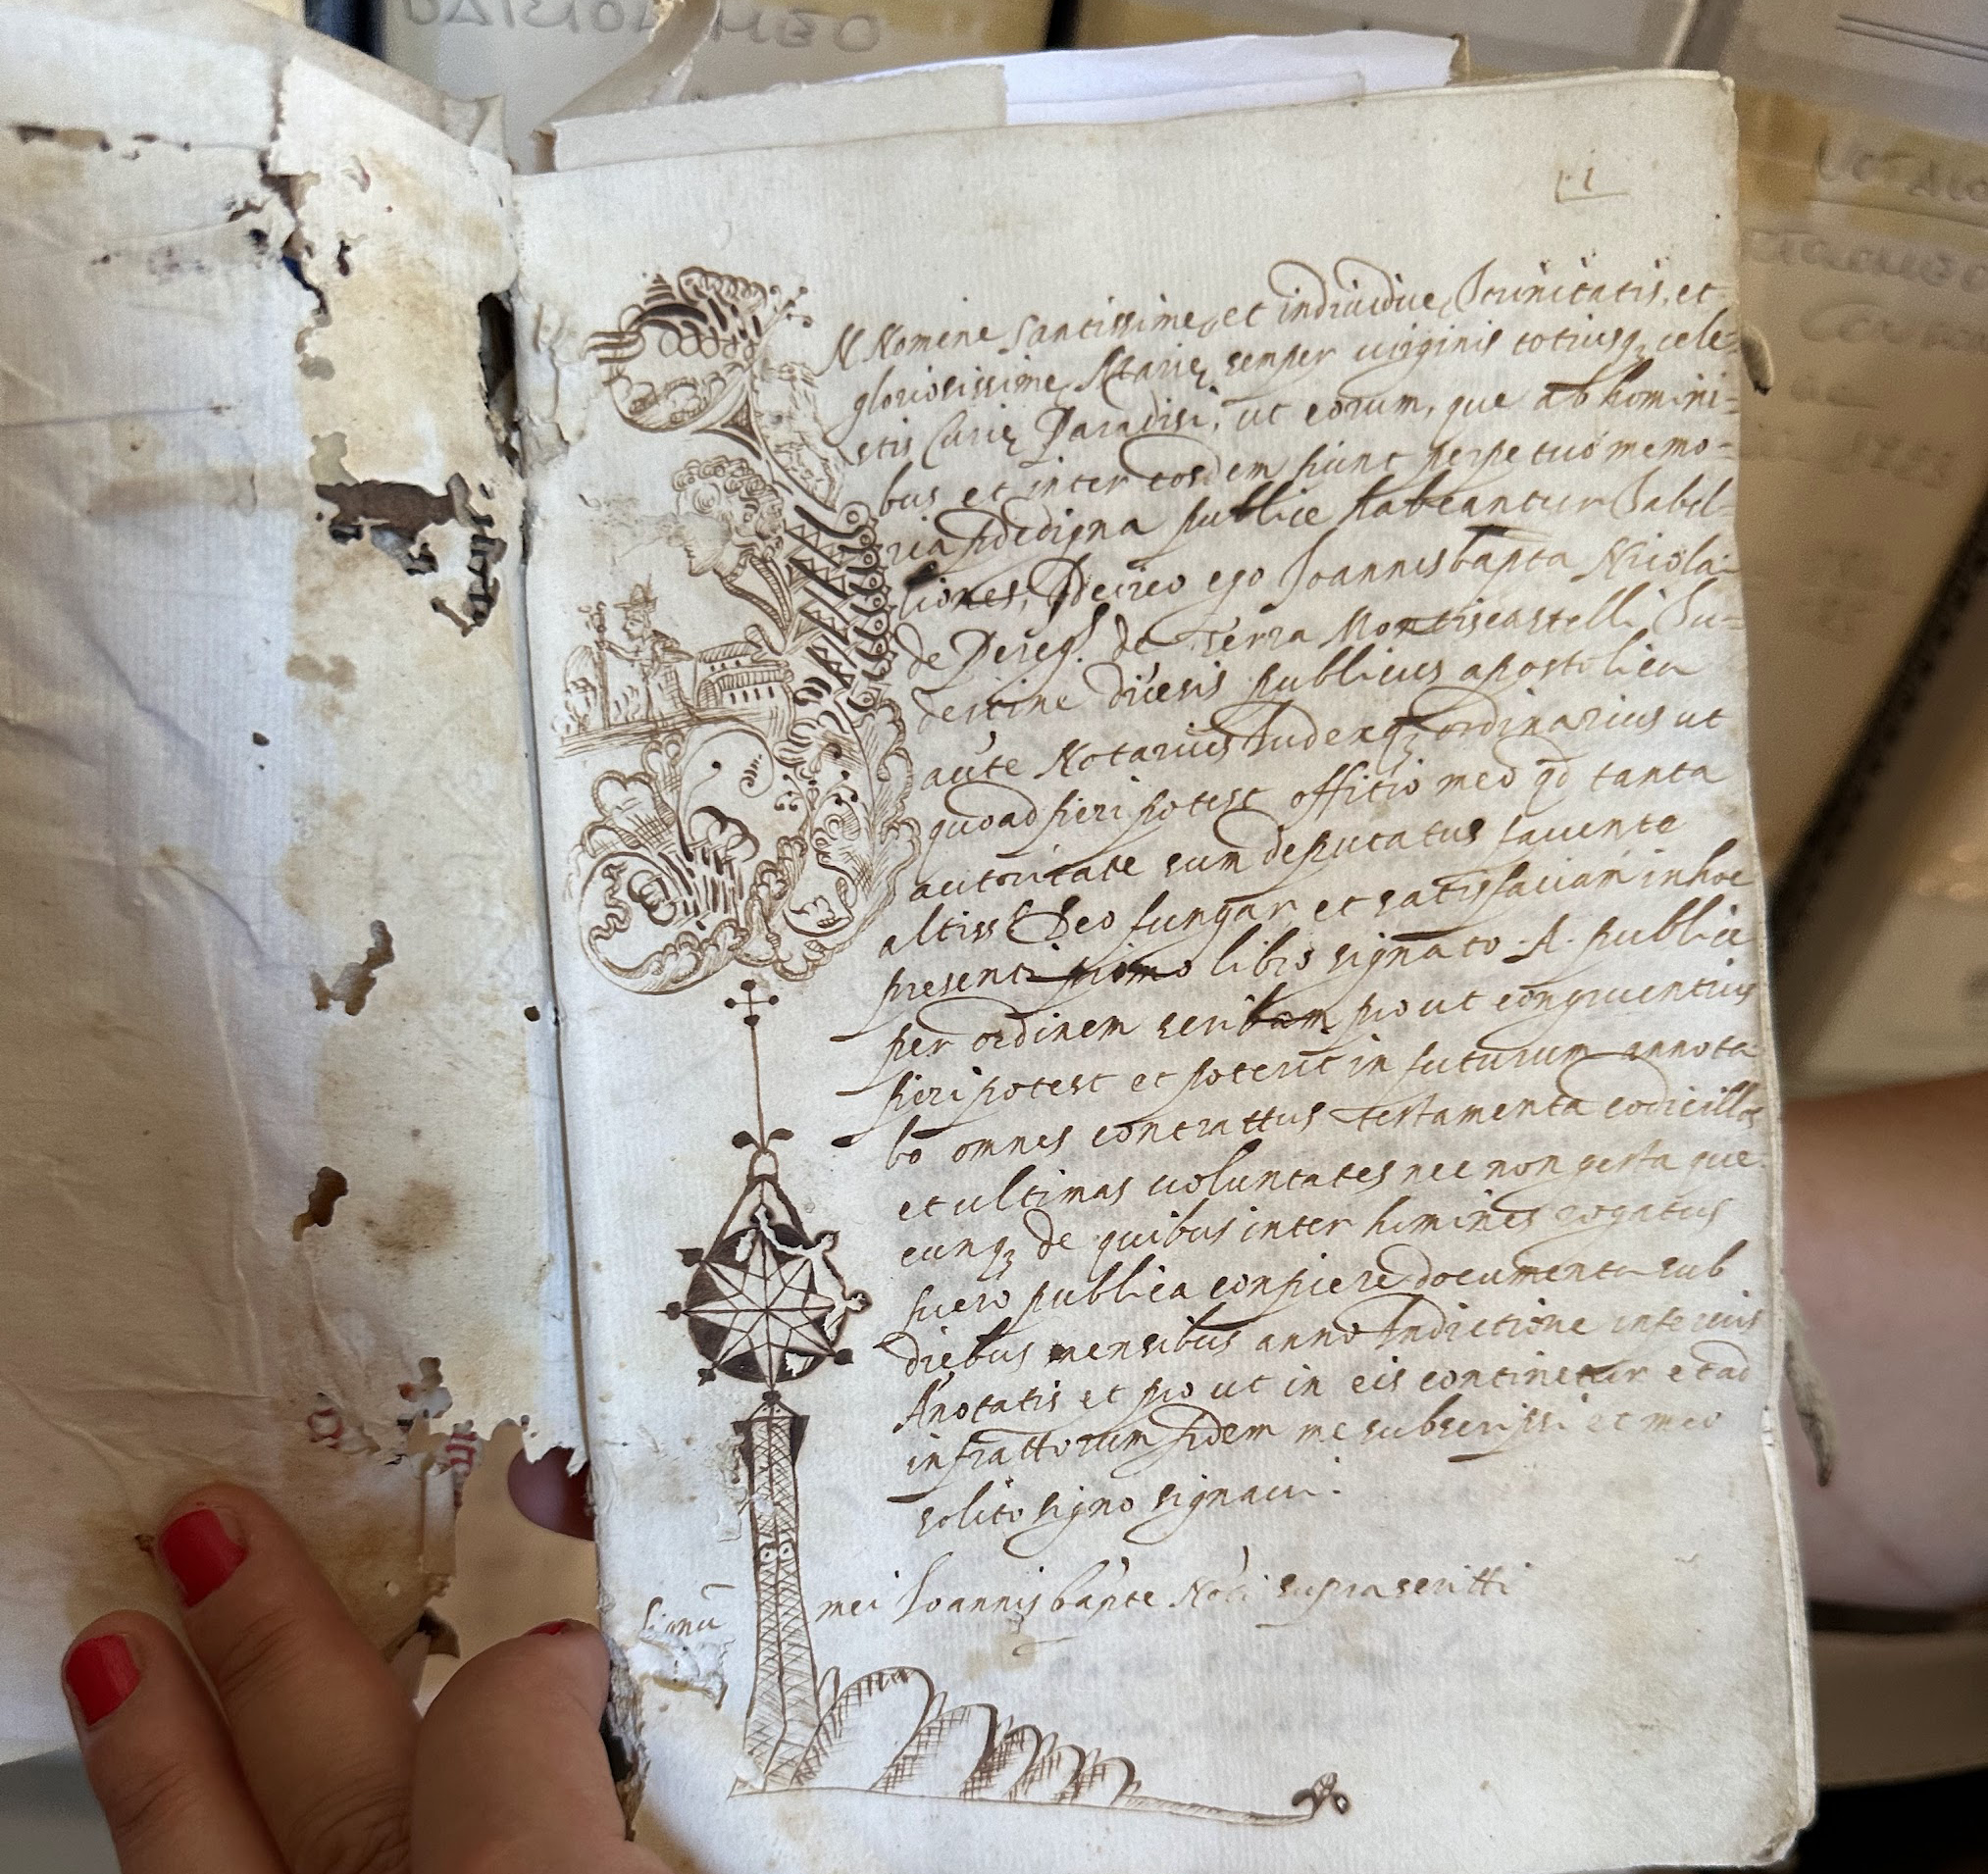 1
IN Nomine Santissime, et individue Trinitatis, et
gloriosissime Marie semper virginis totiusq; cele-
stis Curie Paradisi, ut eorum, que ab homini-
bus et inter eosdem fiunt perpetuo memo-
ria fidedigna publice habeantur Tabel-
liones, Idcirco ego Joannisbapta Nicolai
de Pereg. de Terra Montiscastelli Tu-
dertine diecesis publicus apostolica
aute Notarius Iudexq; ordinarius ut
quoad fieri potest offitio meo qd tanta
autoritate sum deputatus favente
altiss Deo fungar et satisfaciam in hoc
presenti primo libro signato .A. publice
per ordinem scribam prout congruentius
fieri potest et poterit in futurum annota
bo omnes contrattus testamenta codicillos
et ultimas voluntates nec non gesta que
cunq; de quibus inter homines rogatus
fuero publica confiere documenta sub
diebus mensibus anno Indictione inferius
Anotatis et prout in eis continetur et ad
infrattorum fidem me subscripsi et meo
solito signo signavi.
Signũ mei Joannisbapte Noti suprascritti